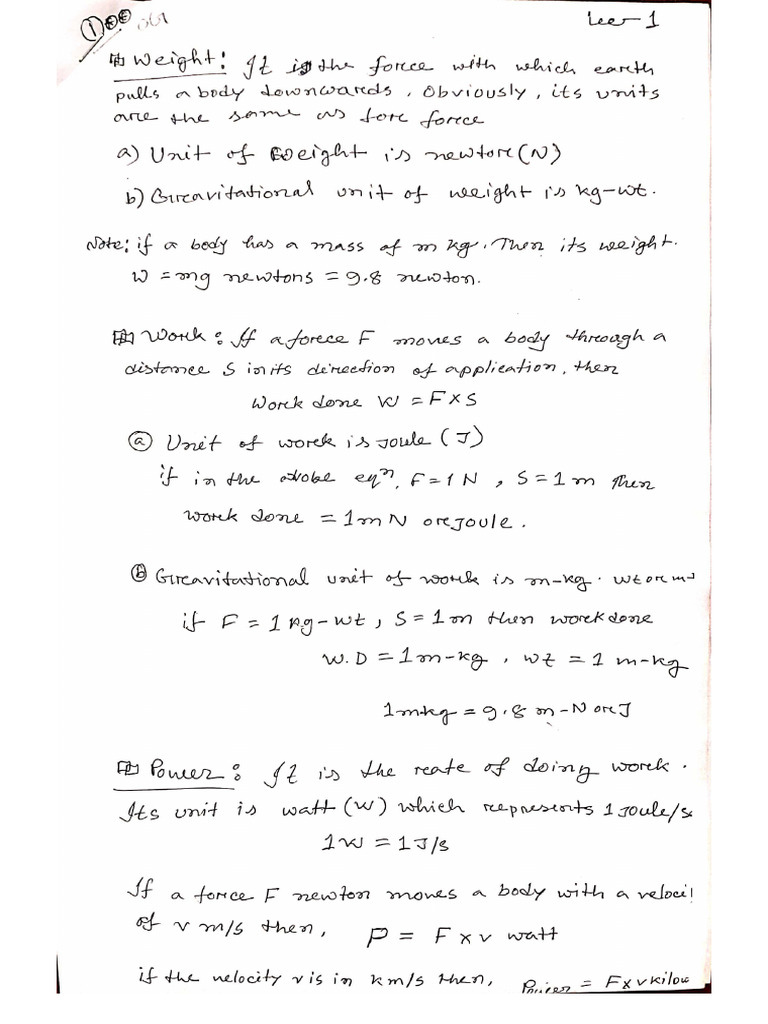 ① Lec-1
Weight: It is the force with which earth
pulls a body downwards. Obviously, its units
are the same as for force
a) Unit of weight is newton (N)
b) Gravitational unit of weight is kg-wt.
Note: if a body has a mass of m kg. Then its weight.
W = mg newtons = 9.8 newton.
Work: If a force F moves a body through a
distance S in its direction of application, then
Work done W = F × S
ⓐ Unit of work is Joule (J)
if in the above eqⁿ, F = 1 N , S = 1 m then
work done = 1 m N or Joule.
ⓑ Gravitational unit of work is m-kg. wt or
if F = 1 kg-wt, S = 1 m then work done
W.D = 1 m-kg, wt = 1 m-kg
1 m-kg = 9.8 m-N or J
Power: It is the rate of doing work.
Its unit is watt (W) which represents 1 Joule/s
1W = 1 J/s
If a force F newton moves a body with a veloci
of v m/s then, P = F × v watt
if the velocity v is in km/s then, Power = F × v kilow